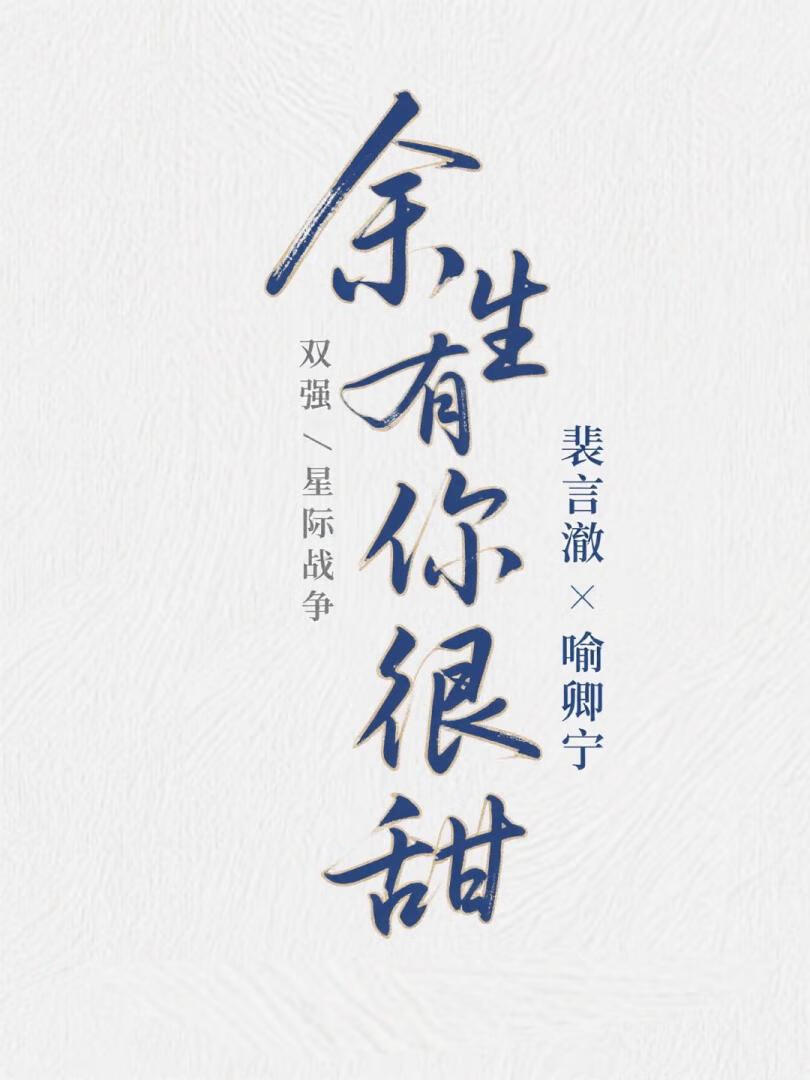 余生有你很甜
双强/星际战争
裴言澈×喻卿宁